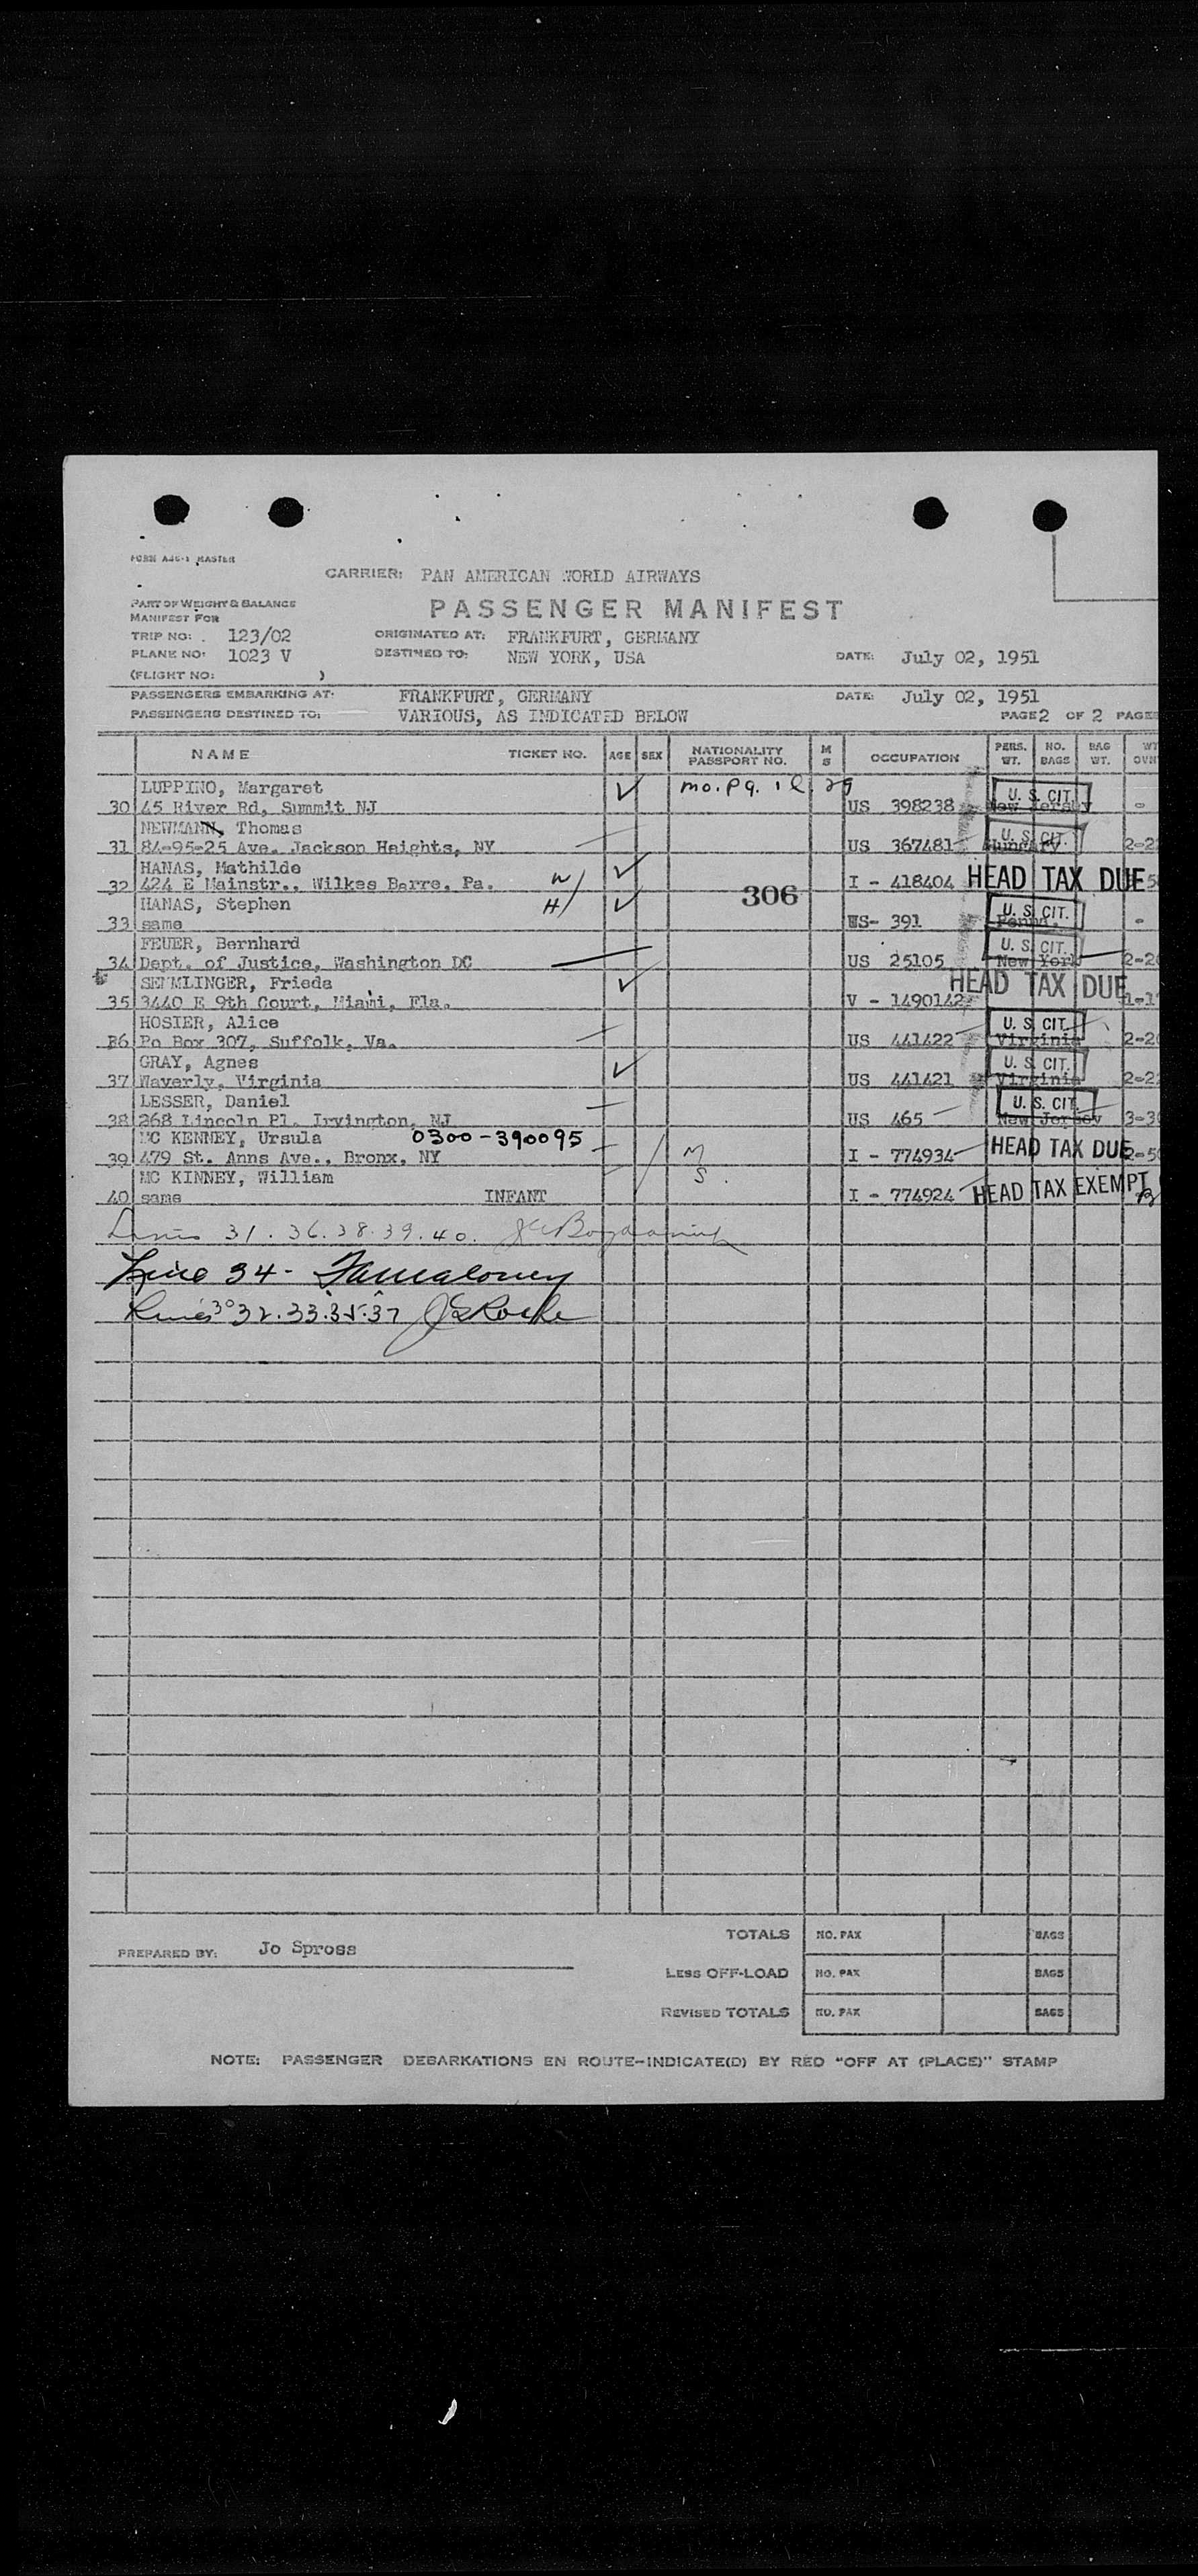 FORM MASTER
CARRIER: PAN AMERICAN WORLD AIRWAYS
PART OF WEIGHT & BALANCE
MANIFEST FOR
PASSENGER MANIFEST
TRIP NO: 123/02 ORIGINATED AT: FRANKFURT, GERMANY
PLANE NO: 1023 V DESTINED TO: NEW YORK, USA DATE: July 02, 1951
(FLIGHT NO: )
PASSENGERS EMBARKING AT: FRANKFURT, GERMANY DATE: July 02, 1951
PASSENGERS DESTINED TO: VARIOUS, AS INDICATED BELOW PAGE 2 OF 2 PAGES
NAME TICKET NO. AGE SEX NATIONALITY PASSPORT NO. M S OCCUPATION PERS. WT. NO. BAGS BAG WT. WT OVN
LUPPINO, Margaret mo. pg. 12. 29 U. S. CIT.
30 45 River Rd, Summit NJ US 398238 New Jersey -
NEWMANN, Thomas U. S. CIT.
31 84-95-25 Ave. Jackson Heights, NY US 367481 Hungary 2-2
HANAS, Mathilde
32 424 E Mainstr., Wilkes Barre, Pa. W I - 418404 HEAD TAX DUE
HANAS, Stephen H 306 U. S. CIT.
33 same US- 391 Penna. -
FEUER, Bernhard U. S. CIT.
34 Dept. of Justice, Washington DC US 25105 New York 2-2
SEMMLINGER, Frieda HEAD TAX DUE
35 3440 E 9th Court, Miami, Fla. V - 1490142 1-1
HOSIER, Alice U. S. CIT.
36 Po Box 307, Suffolk, Va. US 441422 Virginia 2-2
GRAY, Agnes U. S. CIT.
37 Waverly, Virginia US 441421 Virginia 2-2
LESSER, Daniel U. S. CIT.
38 268 Lincoln Pl. Irvington, NJ US 465 New Jersey 3-3
MC KENNEY, Ursula 0300-390095
39 479 St. Anns Ave., Bronx, NY M I - 774934 HEAD TAX DUE 2-50
MC KINNEY, William S.
40 same INFANT I - 774924 HEAD TAX EXEMPT
Lines 31. 36. 38. 39. 40.
Line 34-
Lines 30 32. 33. 35. 37 Roche
PREPARED BY: Jo Spross
TOTALS NO. PAX BAGS
LESS OFF-LOAD NO. PAX BAGS
REVISED TOTALS NO. PAX BAGS
NOTE: PASSENGER DEBARKATIONS EN ROUTE-INDICATE(D) BY RED "OFF AT (PLACE)" STAMP